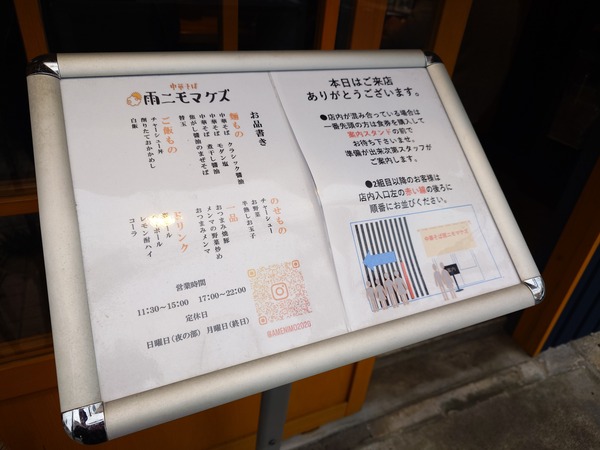 中華そば
雨ニモマケズ
お品書き
麺もの
中華そば クラシック醤油
中華そば モダン塩
中華そば 煮干し醤油
焦がし醤油のまぜそば
替玉
ご飯もの
チャーシュー丼
削りたておかかめし
白飯
のせもの
チャーシュー
お野菜
半熟しお玉子
一品
おつまみ焼豚
メンマの野菜炒め
おつまみメンマ
ドリンク
レモン酎ハイ
コーラ
営業時間
11:30～15:00 17:00～22:00
定休日
日曜日(夜の部) 月曜日(終日)
@AMENIMO2020
本日はご来店
ありがとうございます。
●店内が混み合っている場合は
一番先頭の方は食券を購入して
案内スタンドの前で
お待ち下さいませ。
準備が出来次第スタッフが
ご案内します。
●2組目以降のお客様は
店内入口左の赤い線の後ろに
順番にお並びください。
中華そば雨ニモマケズ